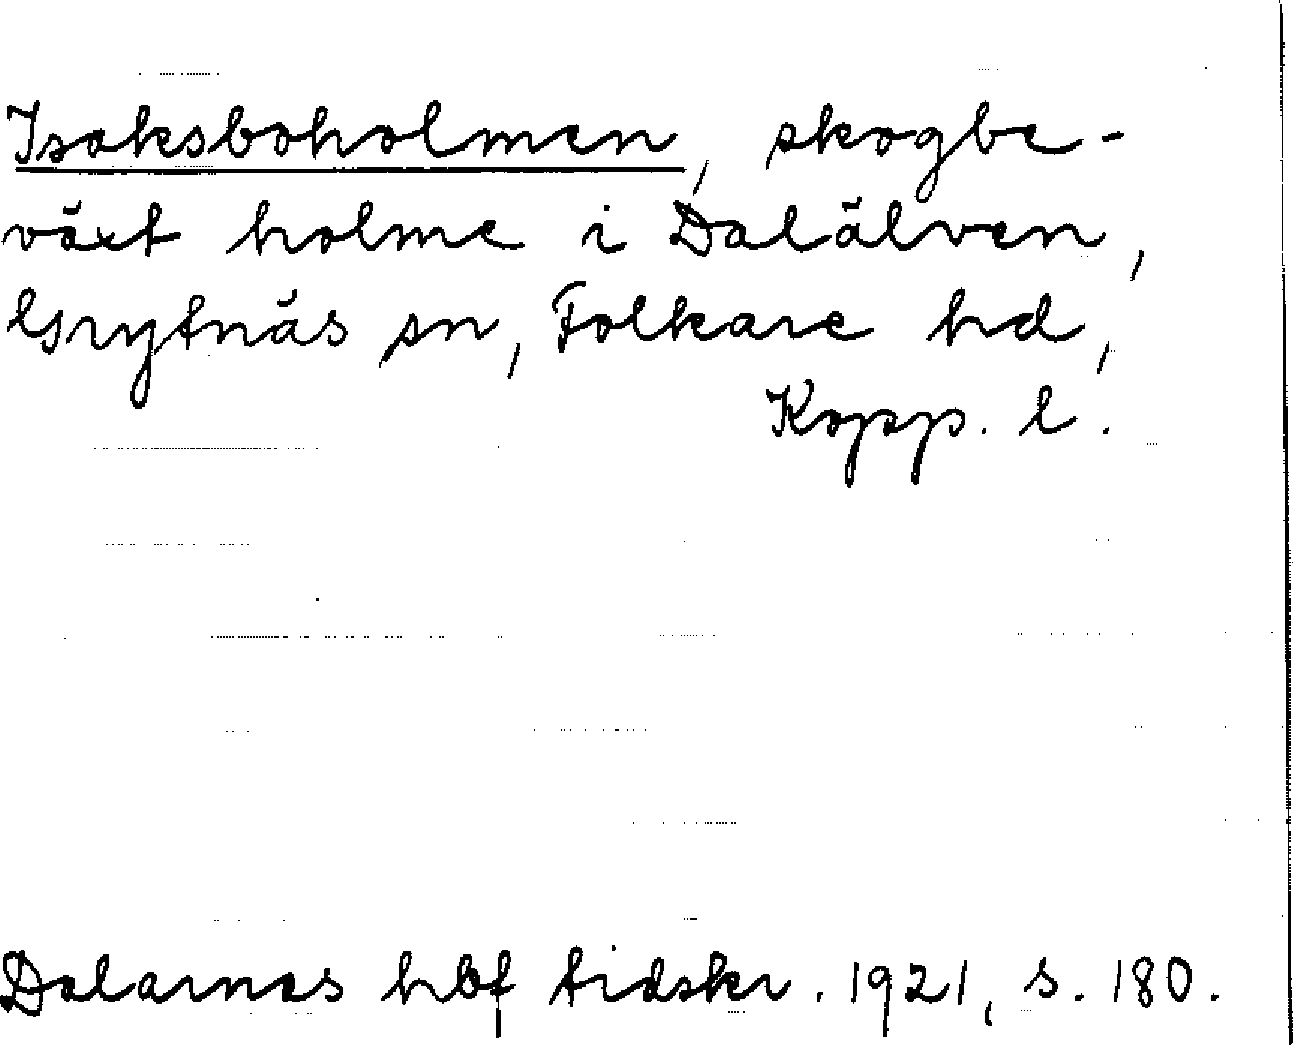 Isaksboholmen, skogbe-
växt holme i Dalälven,
Grytnäs sn, Folkare hd,
Kopp. l.
Dalarnas hbf tidskr. 1921, s. 180.